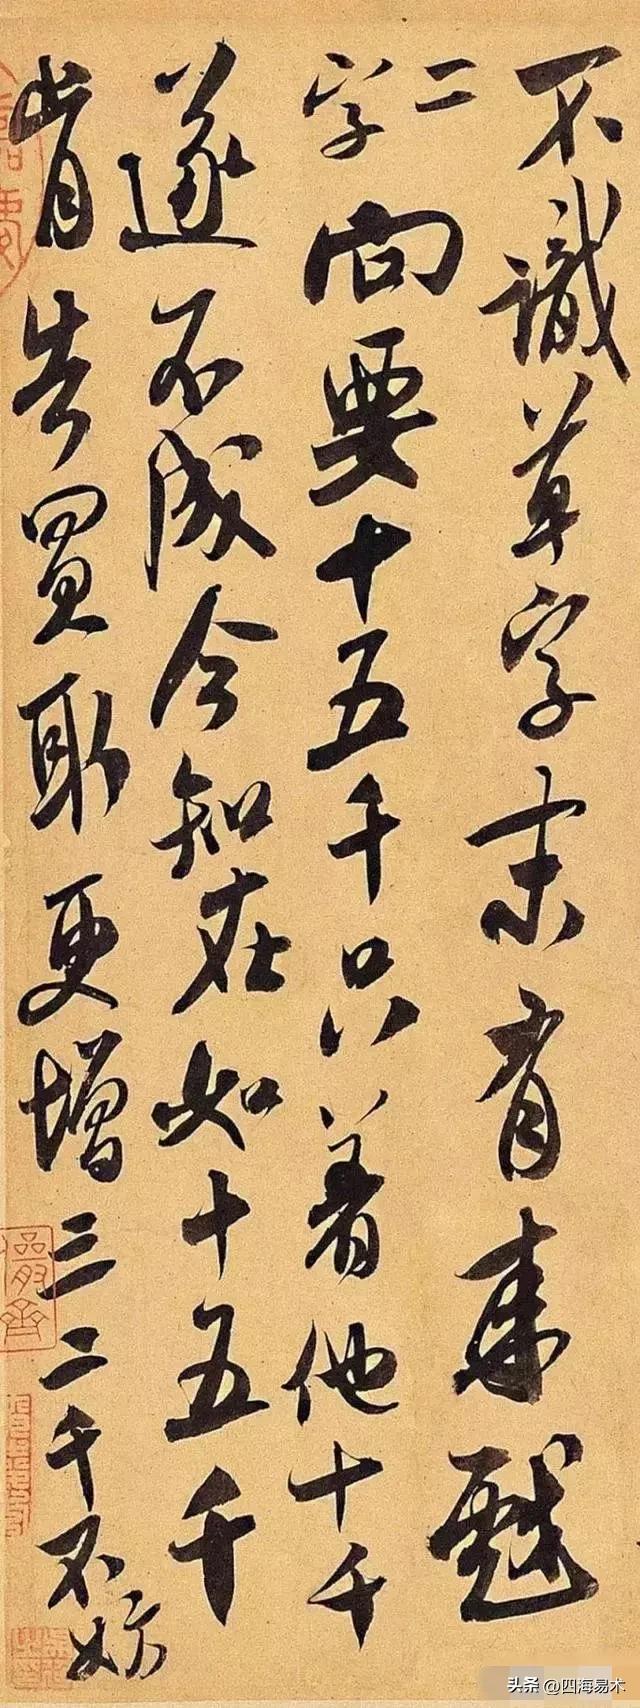 不識草字末有來戲
二字向要十五千只着他十千
遂不成今知在如十五千
肯告買取更增三二千不妨
头条 @四海易木